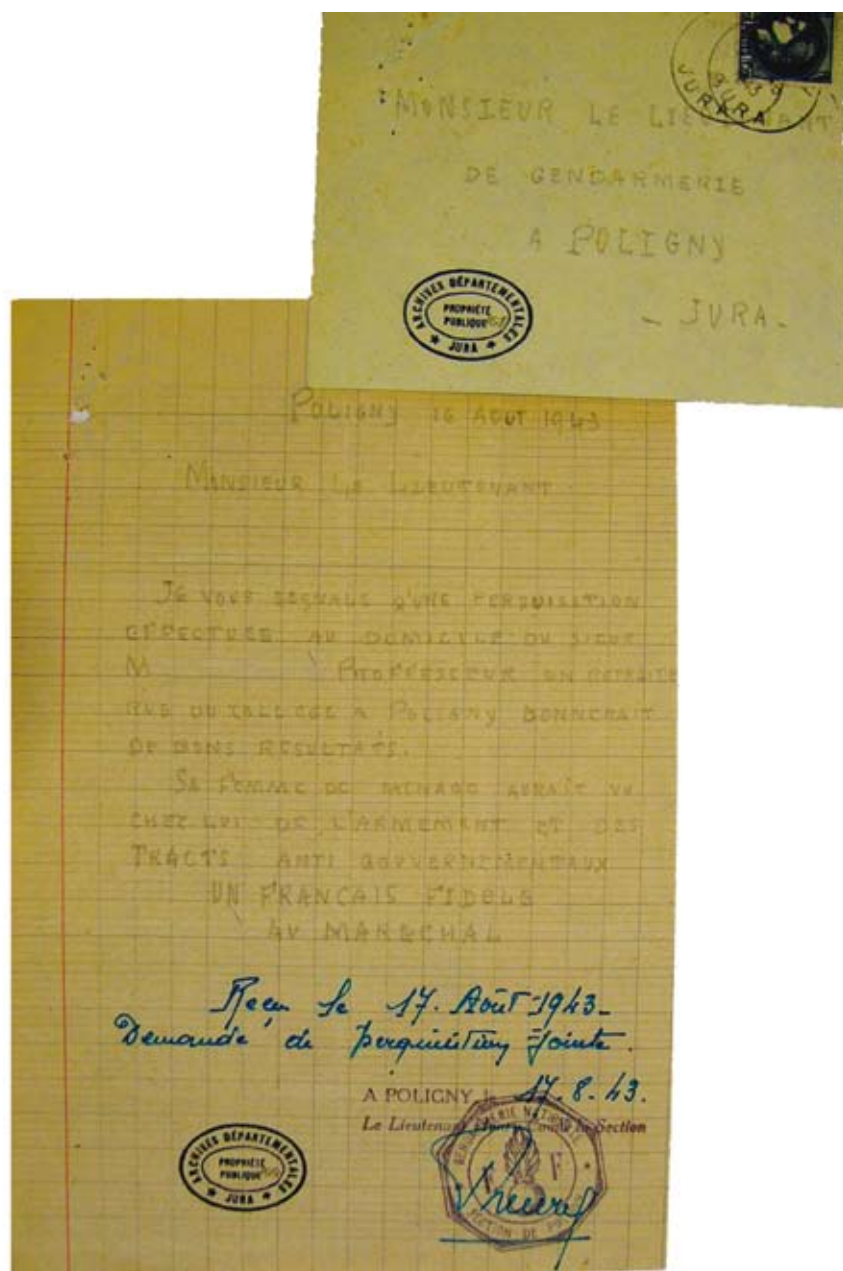 MONSIEUR LE LIEUTENANT
DE GENDARMERIE
A POLIGNY
- JURA -
JURA
ARCHIVES DÉPARTEMENTALES
PROPRIÉTÉ
PUBLIQUE
JURA
POLIGNY 16 AOUT 1943
MONSIEUR LE LIEUTENANT
JE VOUS SIGNALE QU'UNE PERQUISITION
EFFECTUEE AU DOMICILE DU SIEUR
M PROFFESSEUR EN RETRAITE
RUE DU COLLEGE A POLIGNY DONNERAIT
DE BONS RESULTATS.
SA FEMME DE MENAGE AURAIT VU
CHEZ LUI DE L'ARMEMENT ET DES
TRACTS ANTI GOUVERNEMENTAUX
UN FRANCAIS FIDELE
AU MARECHAL
Reçu le 17. Août 1943-
Demande de perquisition jointe.
A POLIGNY, le 17.8.43.
Le Lieutenant Comdt la Section
GENDARMERIE NATIONALE
F
SECTION DE
ARCHIVES DÉPARTEMENTALES
PROPRIÉTÉ
PUBLIQUE
JURA